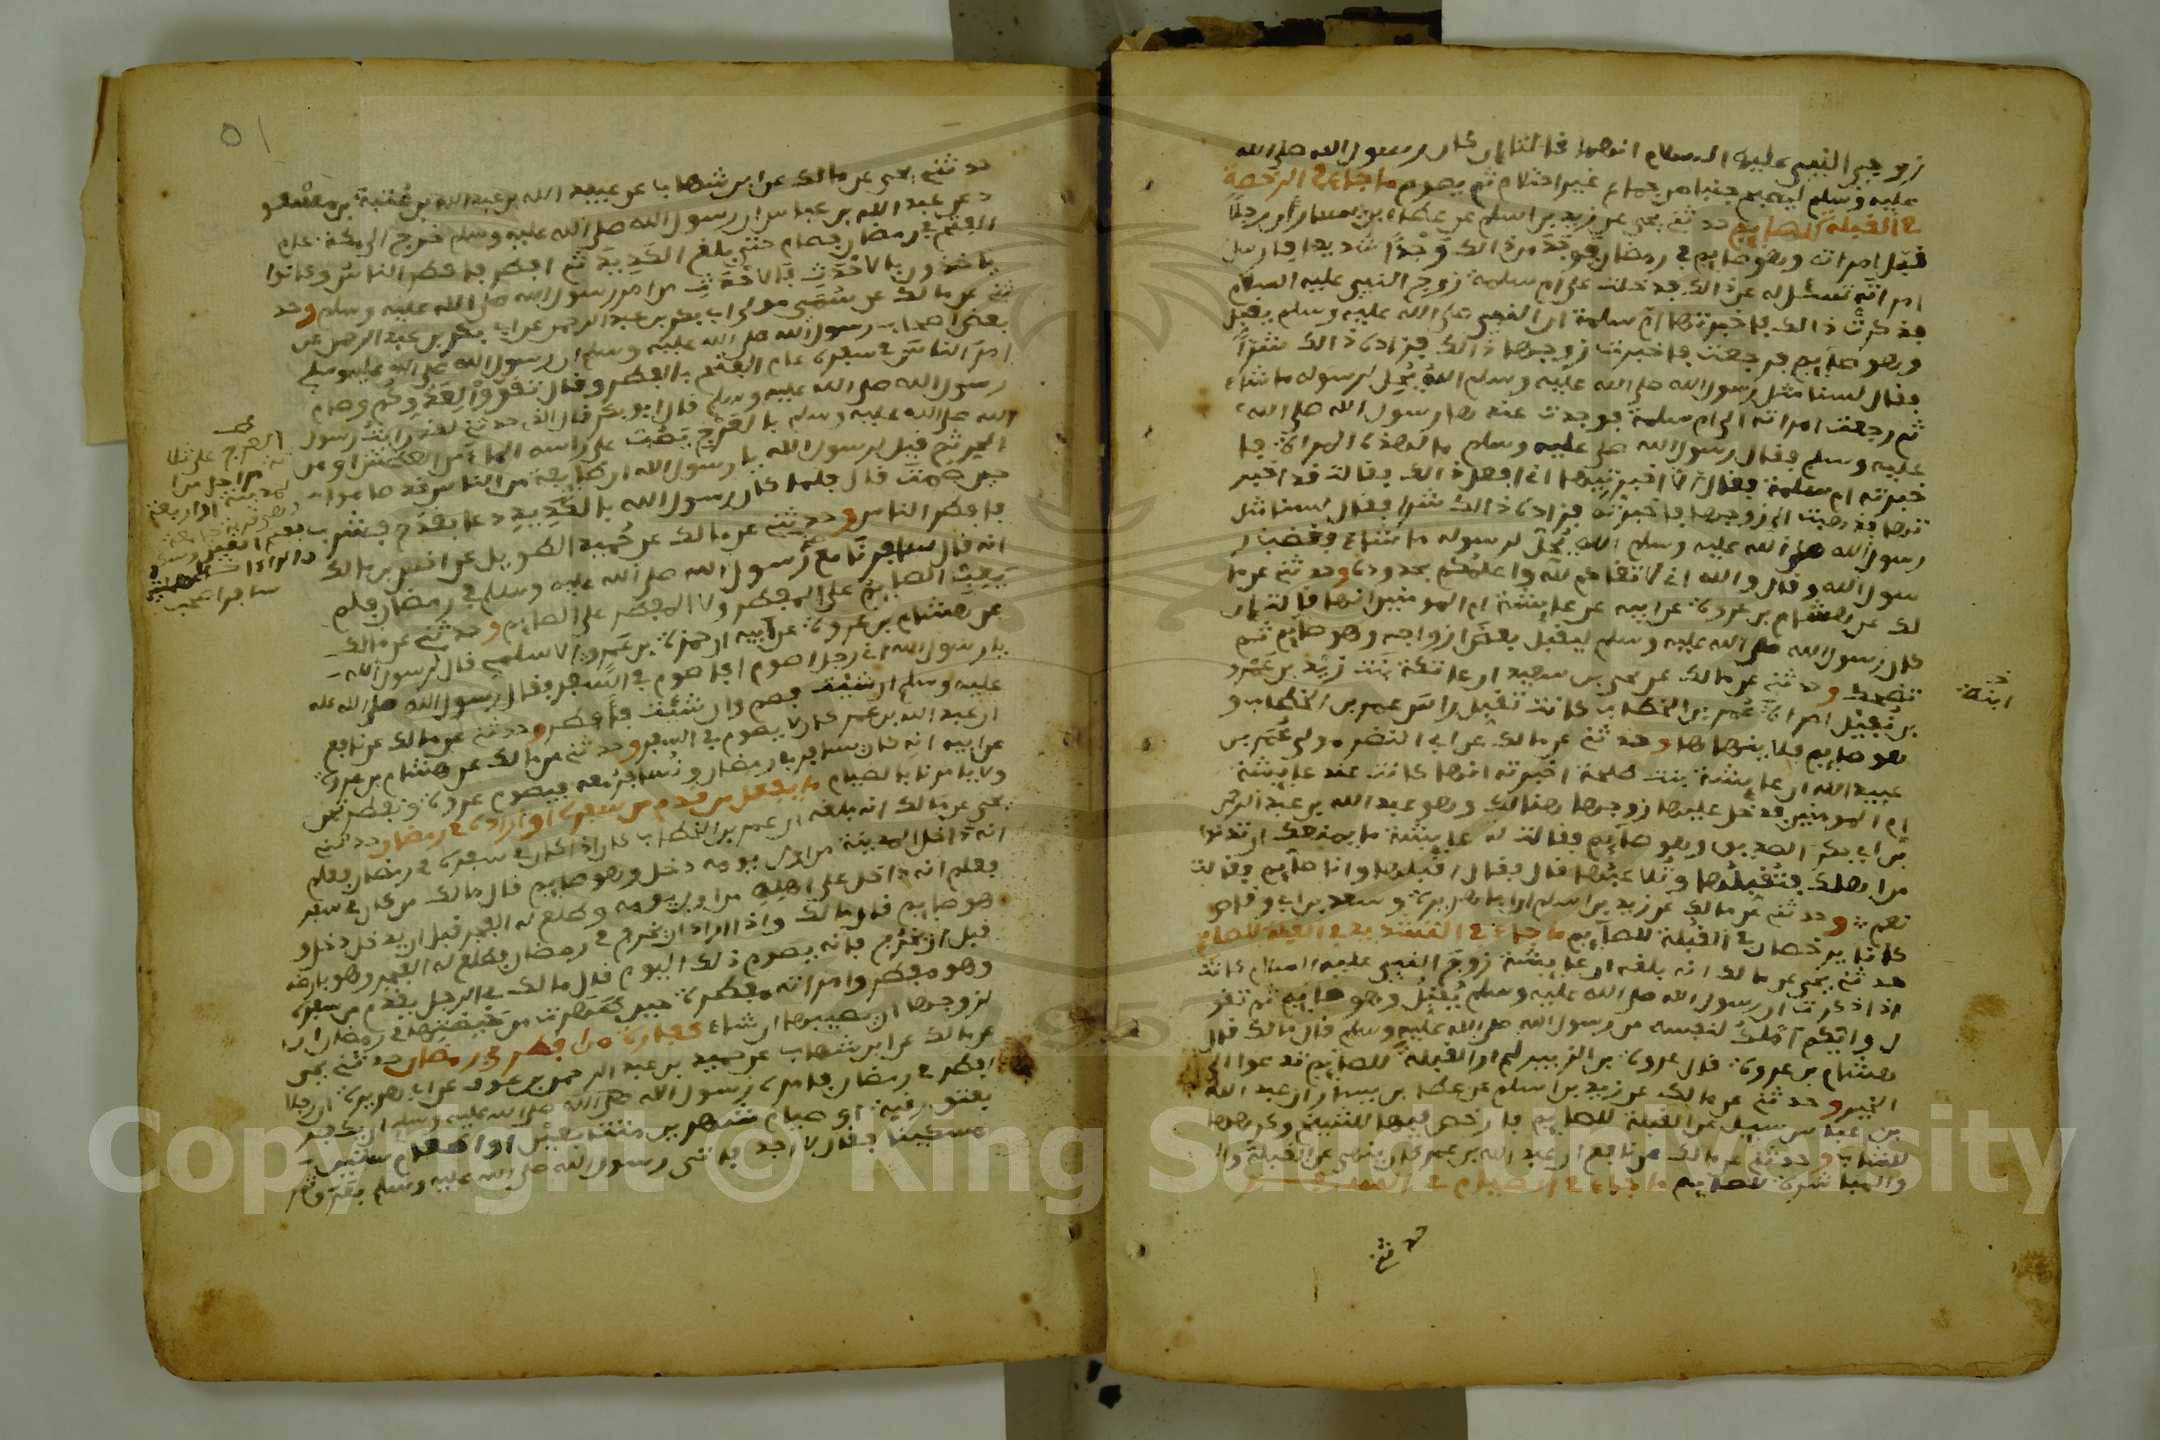 زوجي النبي عليه السلام انهما قالتا ان كان رسول الله صلى الله
عليه وسلم ليصبح جنبا من جماع غير احتلام ثم يصوم ما جاء في الرخصة
في القبلة للصايم حدثني يحي عن زيد بن اسلم عن عطاء بن يسار ان رجلا
قبل امراته وهو صايم في رمضان فوجد من ذالك وجدا شديدا فارسل
امراته تسئل له عن ذالك فدخلت على ام سلمة زوج النبي عليه السلام
فذكرت ذالك فاخبرتها ام سلمة ان النبي صلى الله عليه وسلم يقبل
وهو صايم فرجعت فاخبرت زوجها ذالك فزاده ذالك شرا
وقال لسنا مثل رسول الله صلى الله عليه وسلم الله يحل لرسوله ما شاء
ثم رجعت امراته الى ام سلمة فوجدت عندها رسول الله صلى الله
عليه وسلم فقال رسول الله صلى عليه وسلم ما لهذه المراة فا
خبرته ام سلمة فقال الا اخبرتيها اني افعل ذالك فقالت قد اخبر
تها فذهبت الى زوجها فاخبرته فزاده ذالك شرا وقال لسنا مثل
رسول الله صلى الله عليه وسلم الله يحل لرسوله ما شاء فغضب ر
سول الله وقال والله اني لاتقاكم لله واعلمكم بحدوده وحدثني عن ما
لك عن هشام بن عروة عن ابيه عن عايشة ام المومنين انها قالت ان
كان رسول الله صلى الله عليه وسلم ليقبل بعض ازواجه وهو صايم ثم
تضحك وحدثني عن مالك عن يحي بن سعيد ان عاتكة بنت زيد بن عمرو
بن نفيل امراة عمر بن الخطاب كانت تقبل راس عمر بن الخطاب و
هو صايم فلا ينهاها وحدثني عن مالك عن ابي النضر مولى عمر بن
عبيد الله ان عايشة بنت طلحة اخبرته انها كانت عند عايشة
ام المومنين فدخل عليها زوجها هنالك وهو عبد الله بن عبد الرحمن
بن ابي بكر الصديق وهو صايم فقالت له عايشة ما يمنعك ان تدنوا
من اهلك فتقبلها وتلاعبها قال فقال اقبلها وانا صايم فقالت
نعم وحدثني عن مالك عن زيد بن اسلم ان ابا هريرة وسعد بن ابي وقاص
كانا يرخصان في القبلة للصايم ما جاء في التشديد في القبلة للصايم
حدثني يحي عن مالك انه بلغه ان عايشة زوج النبي عليه السلام كانت
اذا ذكرت ان رسول الله صلى الله عليه وسلم يقبل وهو صايم ثم تقو
ل وايكم املك لنفسه من رسول الله صلى الله عليه وسلم قال مالك قال
هشام بن عروة قال عروة بن الزبير لم ار القبلة للصايم تدعوا الى
الخير وحدثني عن مالك عن زيد بن اسلم عن عطا بن يسار ان عبد الله
بن عباس سيل عن القبلة للصايم فارخص فيها للشيخ وكرهها
للشاب وحدثني عن مالك عن نافع ان عبد الله بن عمر كان ينهى عن القبلة وا
والمباشرة للصايم ما جاء في الصيام في السفر
حدثني
ابنة
51
حدثني يحي عن مالك عن ابن شهاب عن عبيد الله بن عبد الله بن عتبة بن مسعو
د عن عبد الله بن عباس ان رسول الله صلى الله عليه وسلم خرج الى مكة عام
الفتح في رمضان فصام حتى بلغ الكديد ثم افطر فافطر الناس وكانوا
ياخذون بالاحدث فالاحدث من امر رسول الله صلى الله عليه وسلم وحد
ثني عن مالك عن سمي مولى ابي بكر بن عبد الرحمن عن ابي بكر بن عبد الرحمن عن
بعض اصحاب رسول الله صلى الله عليه وسلم ان رسول الله صلى الله عليه وسلم
امر الناس في سفره عام الفتح بالفطر وقال تقووا لعدوكم وصام
رسول الله صلى الله عليه وسلم قال ابو بكر قال الذي حدثني لقد رايت رسول
الله صلى الله عليه وسلم بالعرج يصب على راسه الماء من العطش او من
الحر ثم قيل لرسول الله يا رسول الله ان طايفة من الناس قد صاموا
حين صمت قال فلما كان رسول الله بالكديد دعا بقدح فشرب
فافطر الناس وحدثني عن مالك عن حميد الطويل عن انس بن مالك
انه قال سافرنا مع رسول الله صلى الله عليه وسلم في رمضان فلم
يعب الصايم على المفطر ولا المفطر على الصايم وحدثني عن مالك
عن هشام بن عروة عن ابيه ان حمزة بن عمرو الاسلمي قال لرسول الله
يا رسول الله اني رجل اصوم افاصوم في السفر فقال رسول الله صلى الله عليه
عليه وسلم ان شئت فصم وان شئت فافطر وحدثني عن مالك عن نافع
ان عبد الله بن عمر كان لا يصوم في السفر وحدثني عن مالك عن هشام بن عروة
عن ابيه انه كان يسافر في رمضان ونسافر معه فيصوم عروة ونفطر نحن
ولا يامرنا بالصيام ما يفعل من قدم من سفره او اراده في رمضان حدثني
يحي عن مالك انه بلغه ان عمر بن الخطاب كان اذا كان في سفره في رمضان فعلم
انه داخل المدينة من اول يومه دخل وهو صايم قال مالك من كان في سفر
فعلم انه داخل على اهله من اول يومه وطلع له الفجر قبل ان يدخل دخل و
هو صايم قال مالك واذا اراد ان يخرج في رمضان فطلع له الفجر وهو بارضه
قبل ان يخرج فانه يصوم ذلك اليوم قال مالك في الرجل يقدم من سفره
وهو مفطر وامراته مفطرة حين طهرت من حيضتها في رمضان ان
لزوجها ان يصيبها ان شاء كفارة من افطر في رمضان حدثني يحي
عن مالك عن ابن شهاب عن حميد بن عبد الرحمن بن عوف عن ابي هريرة ان رجلا
افطر في رمضان فامره رسول الله صلى الله عليه وسلم ان يكفر
بعتق رقبة او صيام شهرين متتابعين او اطعام ستين
مسكينا فقال لا اجد فاتي رسول الله صلى الله عليه وسلم بعرق تمر
العرج على ثلا
Copyright © King Saud University
1957